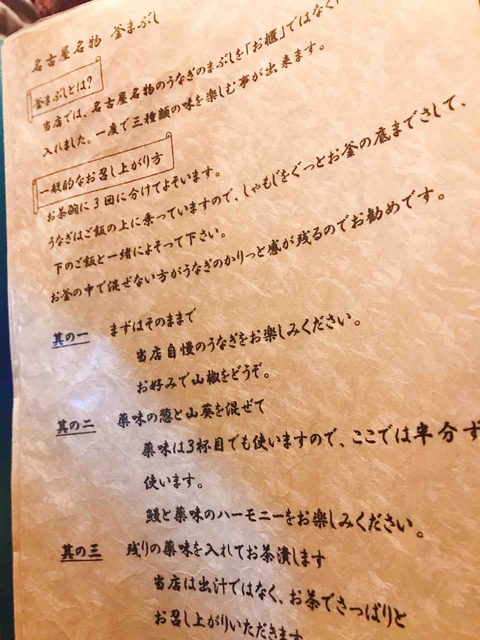 名古屋名物 釜まぶし
釜まぶしとは?
当店では、名古屋名物のうなぎのまぶしを「お櫃」ではなく
入れました。一度で三種類の味を楽しむ事が出来ます。
一般的なお召し上がり方
お茶碗に3回に分けてよそいます。
うなぎはご飯の上に乗っていますので、しゃもじをぐっとお釜の底までさして、
下のご飯と一緒によそって下さい。
お釜の中で混ぜない方がうなぎのかりっと感が残るのでお勧めです。
其の一 まずはそのままで
当店自慢のうなぎをお楽しみください。
お好みで山椒をどうぞ。
其の二 薬味の葱と山葵を混ぜて
薬味は3杯目でも使いますので、ここでは半分ず
使います。
鰻と薬味のハーモニーをお楽しみください。
其の三 残りの薬味を入れてお茶漬します
当店は出汁ではなく、お茶でさっぱりと
お召し上がりいただきます